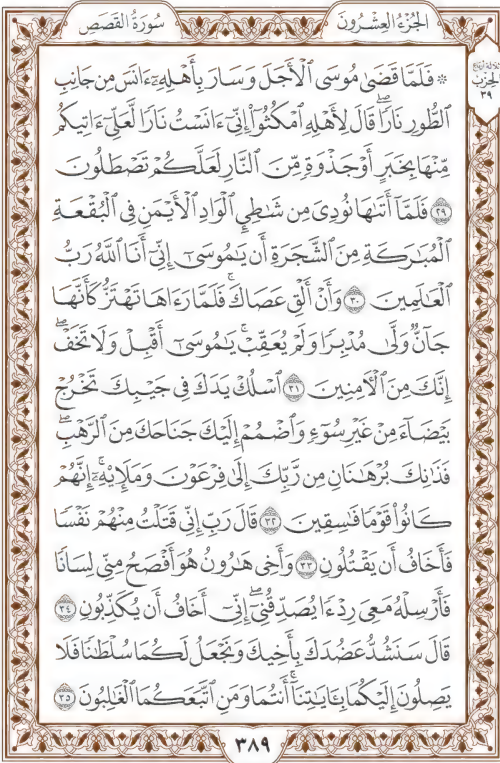 الجُزْءُ العِشْرُونَ
سُورَةُ القَصَصِ
ثلاثة أرباع
الحزب
٣٩
۞ فَلَمَّا قَضَىٰ مُوسَى ٱلْأَجَلَ وَسَارَ بِأَهْلِهِۦٓ ءَانَسَ مِن جَانِبِ
ٱلطُّورِ نَارًاۖ قَالَ لِأَهْلِهِ ٱمْكُثُوٓا۟ إِنِّىٓ ءَانَسْتُ نَارًا لَّعَلِّىٓ ءَاتِيكُم
مِّنْهَا بِخَبَرٍ أَوْ جَذْوَةٍ مِّنَ ٱلنَّارِ لَعَلَّكُمْ تَصْطَلُونَ
٢٩ فَلَمَّآ أَتَىٰهَا نُودِىَ مِن شَٰطِئِ ٱلْوَادِ ٱلْأَيْمَنِ فِى ٱلْبُقْعَةِ
ٱلْمُبَٰرَكَةِ مِنَ ٱلشَّجَرَةِ أَن يَٰمُوسَىٰٓ إِنِّىٓ أَنَا ٱللَّهُ رَبُّ
ٱلْعَٰلَمِينَ ٣٠ وَأَنْ أَلْقِ عَصَاكَۚ فَلَمَّا رَءَاهَا تَهْتَزُّ كَأَنَّهَا
جَآنٌّ وَلَّىٰ مُدْبِرًا وَلَمْ يُعَقِّبْۚ يَٰمُوسَىٰٓ أَقْبِلْ وَلَا تَخَفْۖ
إِنَّكَ مِنَ ٱلْءَامِنِينَ ٣١ ٱسْلُكْ يَدَكَ فِى جَيْبِكَ تَخْرُجْ
بَيْضَآءَ مِنْ غَيْرِ سُوٓءٍ وَٱضْمُمْ إِلَيْكَ جَنَاحَكَ مِنَ ٱلرَّهْبِۖ
فَذَٰنِكَ بُرْهَٰنَانِ مِن رَّبِّكَ إِلَىٰ فِرْعَوْنَ وَمَلَإِي۟هِۦٓۚ إِنَّهُمْ
كَانُوا۟ قَوْمًا فَٰسِقِينَ ٣٢ قَالَ رَبِّ إِنِّى قَتَلْتُ مِنْهُمْ نَفْسًا
فَأَخَافُ أَن يَقْتُلُونِ ٣٣ وَأَخِى هَٰرُونُ هُوَ أَفْصَحُ مِنِّى لِسَانًا
فَأَرْسِلْهُ مَعِىَ رِدْءًا يُصَدِّقُنِىٓۖ إِنِّىٓ أَخَافُ أَن يُكَذِّبُونِ ٣٤
قَالَ سَنَشُدُّ عَضُدَكَ بِأَخِيكَ وَنَجْعَلُ لَكُمَا سُلْطَٰنًا فَلَا
يَصِلُونَ إِلَيْكُمَا بِـَٔايَٰتِنَآۚ أَنتُمَا وَمَنِ ٱتَّبَعَكُمَا ٱلْغَٰلِبُونَ ٣٥
٣٨٩